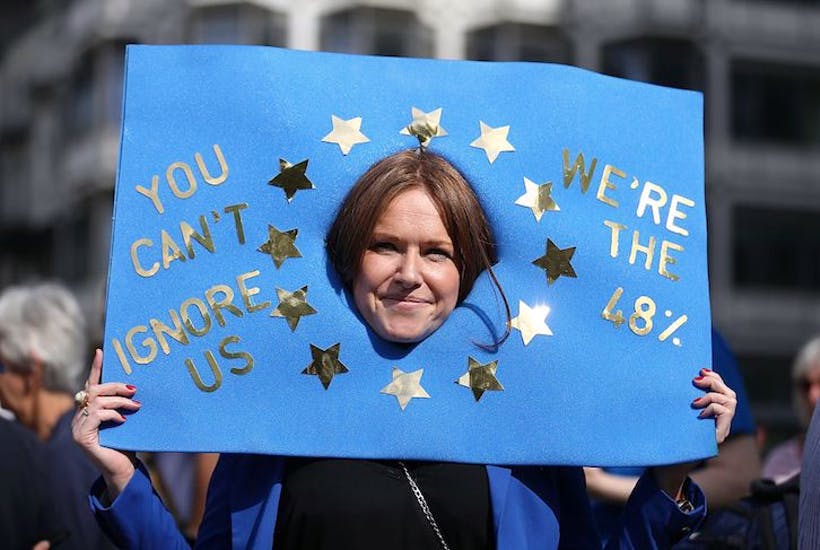 YOU
CAN'T
IGNORE
US
WE'RE
THE
48%